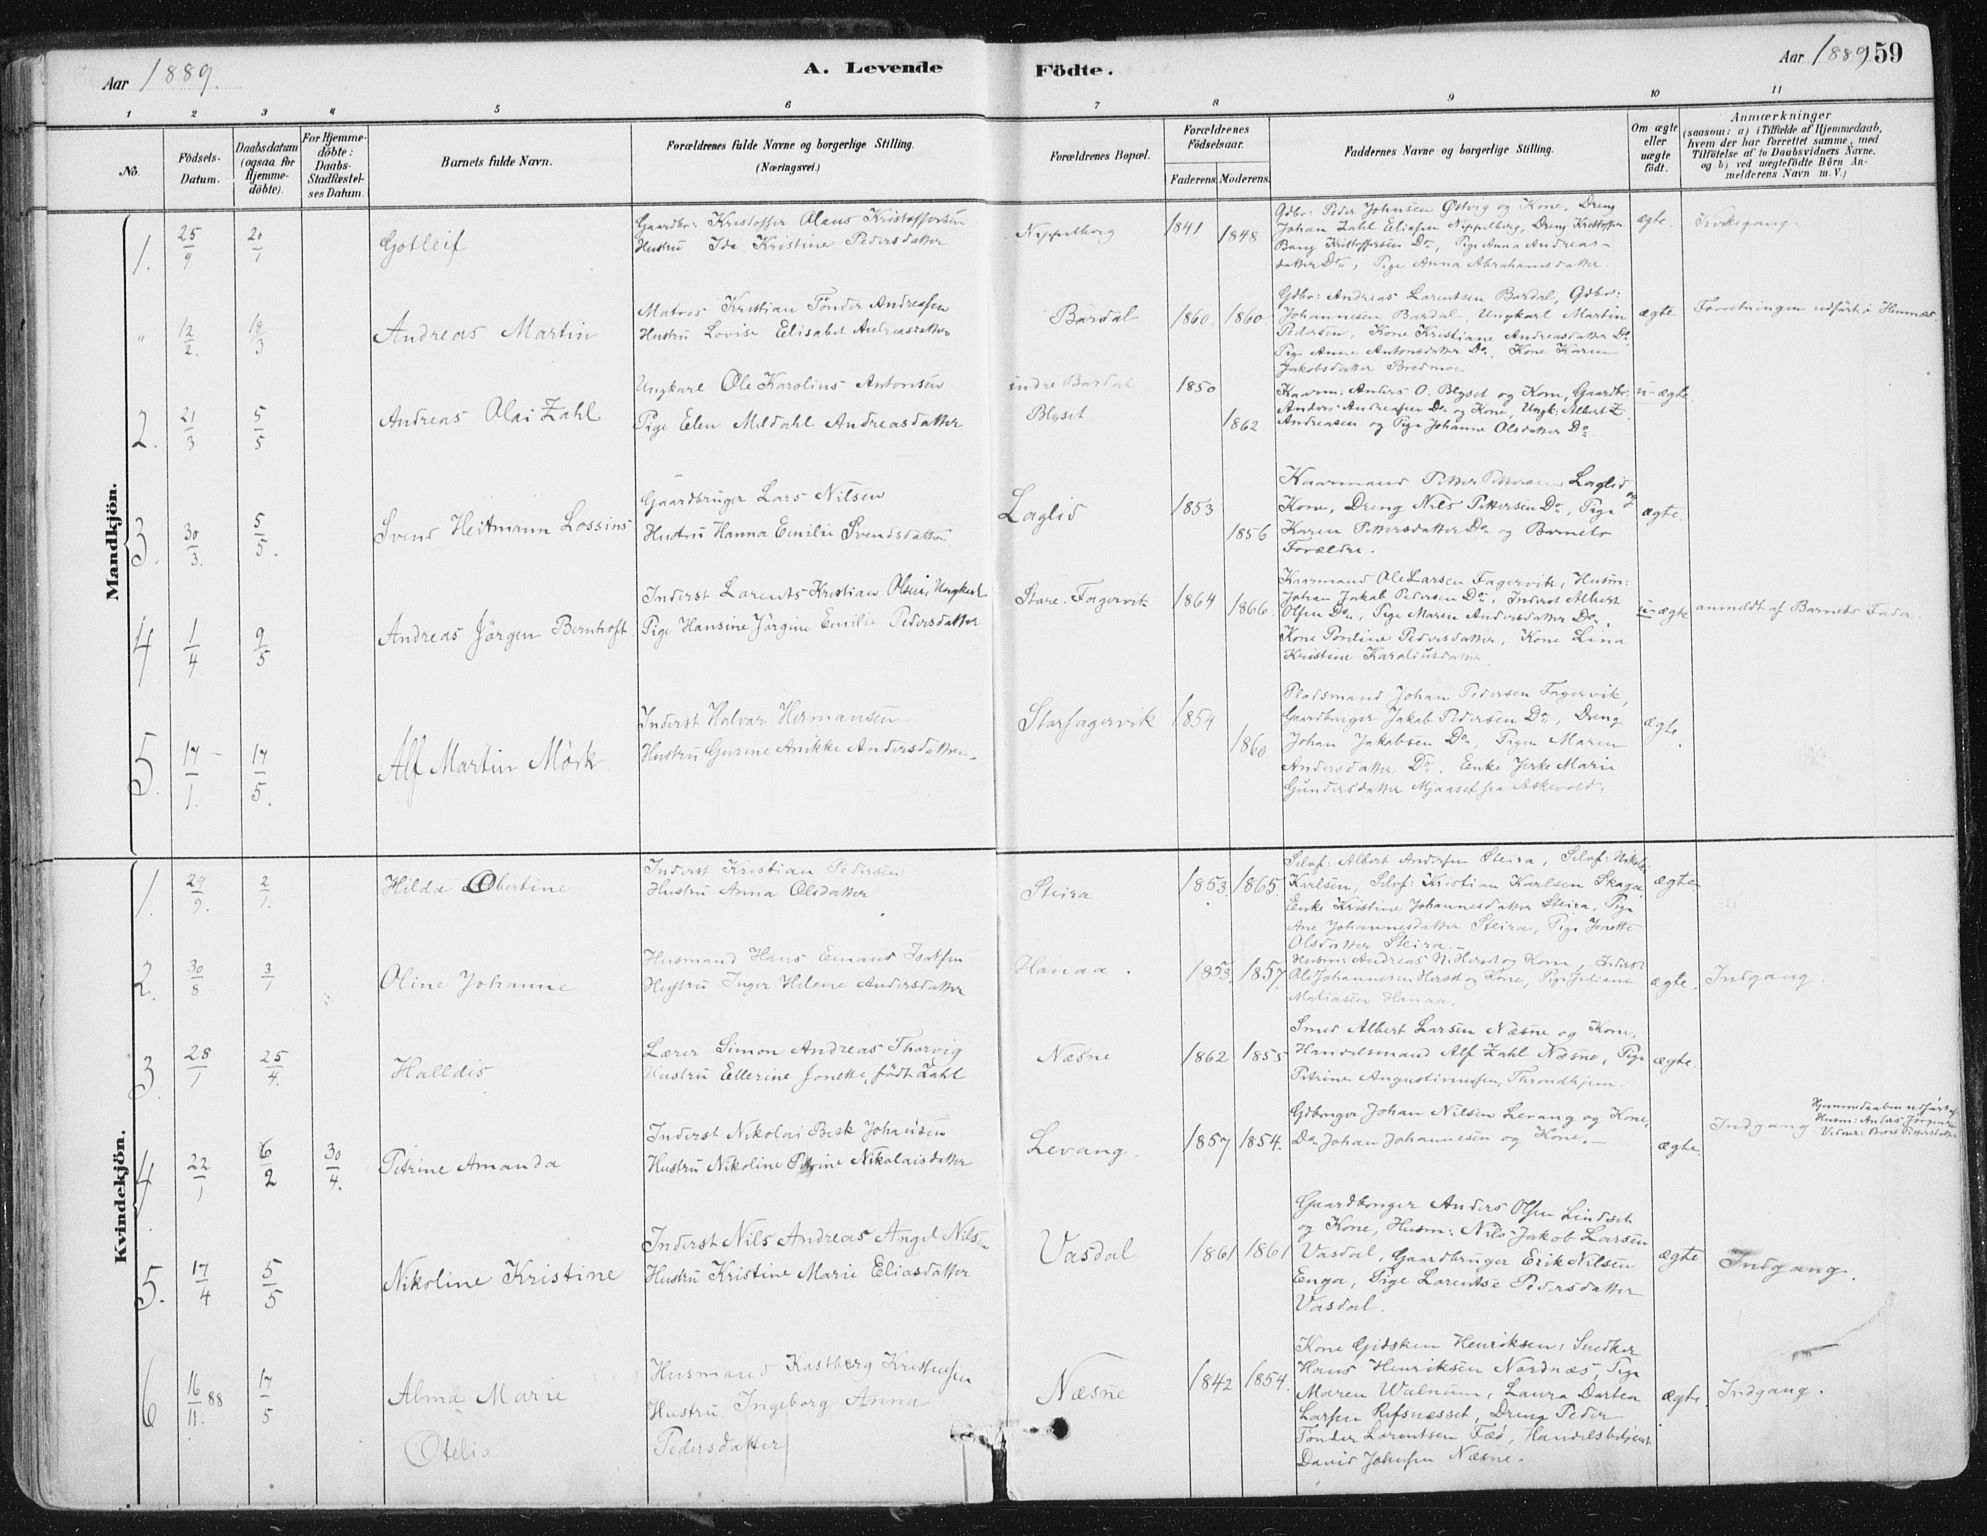 Aar 1889.
A. Levende
Födte.
Aar 1889
59
1 2 3 4 5 6 7 8 9 10 11
No.
Födsels-
Datum.
Daabsdatum
(ogsaa for
Hjemme-
döbte).
For Hjemme-
döbte:
Daabs-
Stadfæstel-
ses Datum.
Barnets fulde Navn.
Forældrenes fulde Navne og borgerlige Stilling.
(Næringsvei.)
Forældrenes Bopæl.
Forældrenes
Födselsaar.
Faderens. Moderens.
Faddernes Navne og borgerlige Stilling.
Om ægte
eller
uægte
födt.
Anmærkninger
(saasom: a) i Tilfælde af Hjemmedaab,
hvem der har forrettet samme, med
Tilföielse af to Daabsvidners Navne.
og b) ved uægtefödte Börn An-
melderens Navn m. V.)
Mandkjön.
1. 25/9 20/1
Gotleif
Gaardbr: Kristoffer Olaus Kristoffersen
Hustru Ida Kristine Pedersdatter
Nippelberg
1841 1848
Gdbr: Peder Johnsen Østvig og Kone, Dreng
Johan Zahl Eliasen Nippelberg, Dreng Kristoffer
Bang Kristoffersen Do, Pige Anna Andreas-
datter Do, Pige Anna Abrahamsdatter.
ægte.
Kirkegang.
" 12/2. 18/3
Andreas Martin
Matros Kristian Tönder Andreasen
Hustru Lovise Elisabet Andreasdatter
Bardal
1860. 1860.
Gdbr: Andreas Larentsen Bardal, Gdbr:
Johannesen Bardal, Ungkarl Martin
Pedersen, Kone Kristiane Andreasdatter Do,
Pige Anne Antonsdatter Do, Kone Karen
Jakobsdatter Bredmoe
ægte
Forretningen udfört i Hemnæs.
2. 21/3 5/5
Andreas Olai Zahl
Ungkarl Ole Karolius Antonsen
Pige Elen Meldahl Andreasdatter
indre Bardal
Blyset
1850
1862
Kaarm: Anders O. Blyset og Kone, Gaardbr:
Anders Andreasen Do og Kone, Ungk: Albert Z.
Andreasen og Pige Johanne Olsdatter Do.
u-ægte.
3. 30/3. 5/5.
Svend Heitmann Lossius
Gaardbruger Lars Nilsen
Hustru Hanna Emilie Svendsdatter
Laglid
1853
1856
Kaarmand Petter Pettersen Laglid og
Kone, Dreng Nils Pettersen Do, Pige
Karen Pettersdatter Do og Barnets
Forældre.
ægte.
4. 1/4. 9/5
Andreas Jörgen Bernhoft
Inderst Larents Kristian Olsen, Ungkarl
Pige Hansine Jörgine Emilie Pedersdatter
Store-Fagervik
1864 1866.
Kaarmand Ole Larsen Fagervik, Husm:
Johan Jakob Pedersen Do, Inderst Albert
Olsen Do, Pige Maren Andersdatter Do,
Kone Pauline Pedersdatter, Kone Lina
Kristine Karoliusdatter.
u-ægte
anmeldt af Barnets Fader.
5. 17/1. 17/5.
Alf Martin Mörk
Inderst Halvar Hermansen
Hustru Gurine Anikke Andersdatter.
Storfagervik
1854
1860
Pladsmand Johan Pedersen Fagervik,
Gaardbruger Jakob Pedersen Do, Dreng
Johan Jakobsen Do, Pigen Maren
Andersdatter Do, Enke Jerke Marie
Gundersdatter Mjaaset fra Askevold.
ægte.
Kvindekjön.
1. 29/9. 2/1.
Hilda Obertine
Inderst Kristian Pedersen
Hustru Anna Olsdatter
Steira
1853. 1865.
Selvf: Albert Andersen Steira, Selvf: Nikolai
Karlsen, Selvf: Kristian Karlsen Skaga,
Enke Kristine Johannesdatter Steira, Pige
Ane Johannesdatter Steira, Pige Jonette
Olsdatter Steira.
ægte
2. 30/8 3/1
Oline Johanne
Husmand Hans Emaus Isaksen
Hustru Inger Helene Andersdatter
Hanaa.
1853. 1857.
Husm: Andreas N. Hersd og Kone, Inderst
Ole Johannesen Hersd og Kone, Pige Juliane
Matiasen Hanaa.
ægte.
Indgang.
3. 28/1 25/4.
Halldis
Lærer Simon Andreas Thorvig
Hustru Ellerine Jonette, födt Zahl
Næsne
1862 1855
Smed Albert Larsen Næsne og Kone,
Handelsmand Alf Zahl Næsne, Pige
Petrine Augustinussen, Throndhjem.
ægte.
4. 22/1 6/2 30/4.
Petrine Amanda
Inderst Nikolai Beck Johansen
Hustru Nikoline Petrine Nikolaisdatter
Levang.
1857 1854.
Gdbruger Johan Nilsen Levang og Kone,
Do Johan Johannesen og Kone.
ægte.
Indgang
Hjemmedaaben udfört af
Husm: Anders Jörgensen
5. 17/4 5/5
Nikoline Kristine
Inderst Nils Andreas Angel Nilsen
Hustru Kristine Marie Eliasdatter
Vasdal
1861 1861
Gaardbruger Anders Olsen Lindset
og Kone, Husm: Nils Jakob Larsen
Vasdal, Gaardbruger Erik Nilsen
Enga, Pige Larentse Pedersdatter
Vasdal.
ægte
Indgang.
6 16/11. 88 17/5
Alma Marie
Otelia
Husmand Kastberg Kristensen
Hustru Ingeborg Anna
Pedersdatter
Næsne
1842 1854.
Kone Gidsken Henriksen, Snedker
Hans Henriksen Nordnæs, Pige
Maren Walnum, Laura Dortea
Larsen Refsnesset, Dreng Peder
Tönder Larentsen Fæö, Handelsbetjent
David Johnsen Næsne.
ægte.
Indgang.